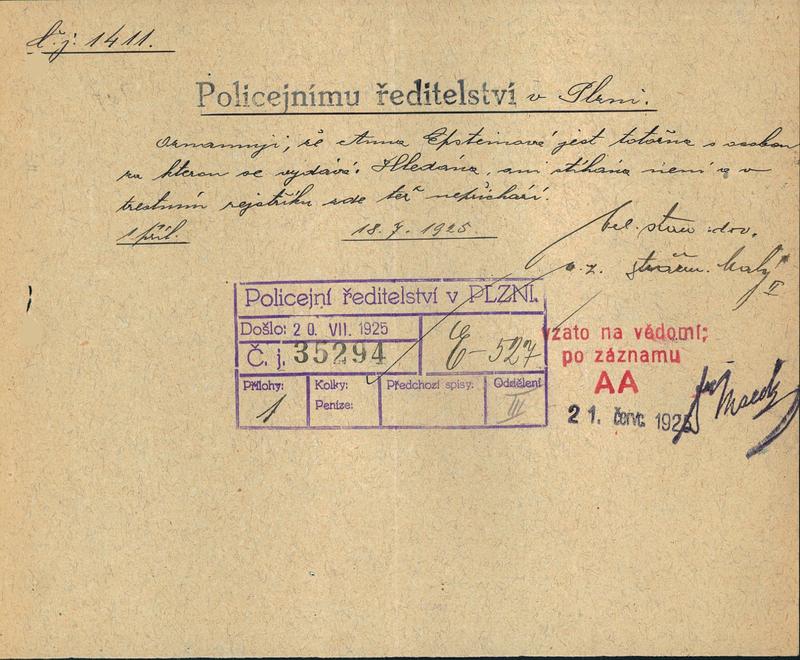 Č.j. 1411.
Policejnímu ředitelství v Plzni.
Oznamuji, že Anna Epsteinová jest totožna s osobou
za kterou se vydává. Hledána, ani stíhána není a v
trestním rejstříku zde též nepřichází.
1 příl. 18.7. 1925.
vel. stan
Malý
II
Policejní ředitelství v PLZNI.
Došlo: 20. VII. 1925
Č. j. 35294
E-527
Přílohy: Kolky: Předchozí spisy: Oddělení
1 Peníze: III
vzato na vědomí;
po záznamu
AA
21. červ. 1925